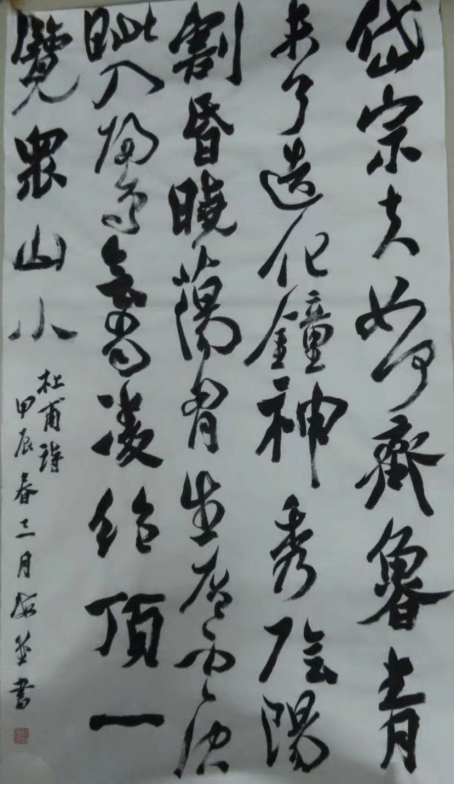 岱宗夫如何齊魯青
未了造化鐘神秀陰陽
割昏曉蕩胷生層雲決
眦入歸鳥會當凌絕頂一
覽眾山小
杜甫詩
甲辰春三月書